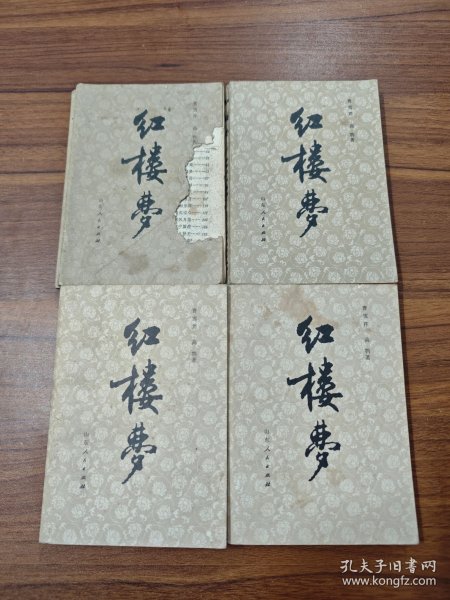 红楼梦
曹雪芹 高鹗著
山东人民出版社
红楼梦
曹雪芹 高鹗著
山东人民出版社
红楼梦
曹雪芹 高鹗著
山东人民出版社
红楼梦
山东人民出版社
孔夫子旧书网
www.kongfz.com